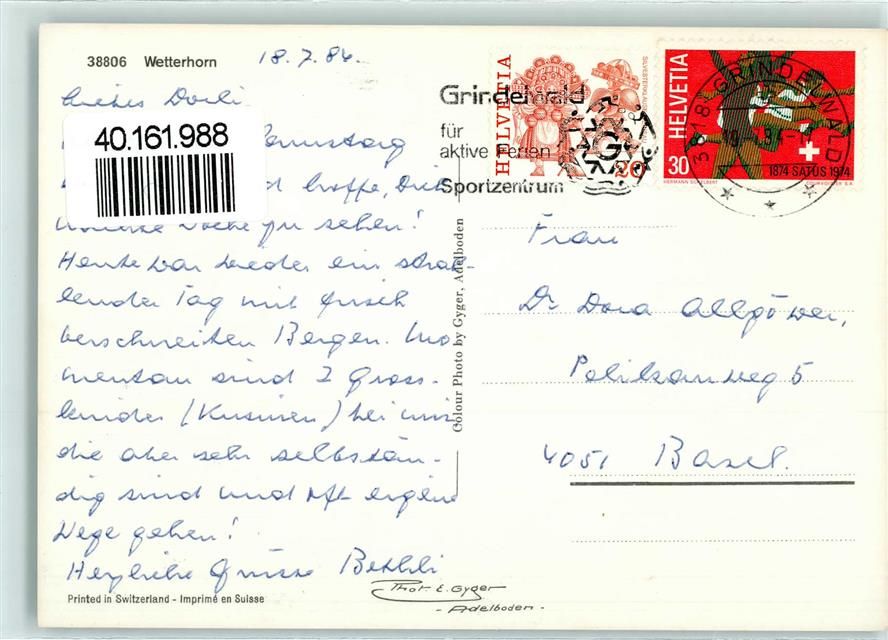 38806 Wetterhorn
18.7.86.
Liebes Dorli
40.161.988
hoffe, Dich
Woche zu sehen!
Heute war wieder ein strah-
lender Tag mit frisch
verschneiten Bergen. Mo
mentan sind 2 Gross-
kinder (Kusinen) bei mir
die aber sehr selbstän-
dig sind und oft eigene
Wege gehen!
Herzliche Grüsse Bethli
Printed in Switzerland - Imprimé en Suisse
Colour Photo by Gyger, Adelboden
Phot. E. Gyger
- Adelboden -
Grindelwald
für
aktive Ferien
Sportzentrum
HELVETIA
20
HELVETIA
30
1874 SATUS 1974
3818 GRINDELWALD
Frau
Dr Dora Allgöwer,
Pelikanweg 5
4051 Basel.